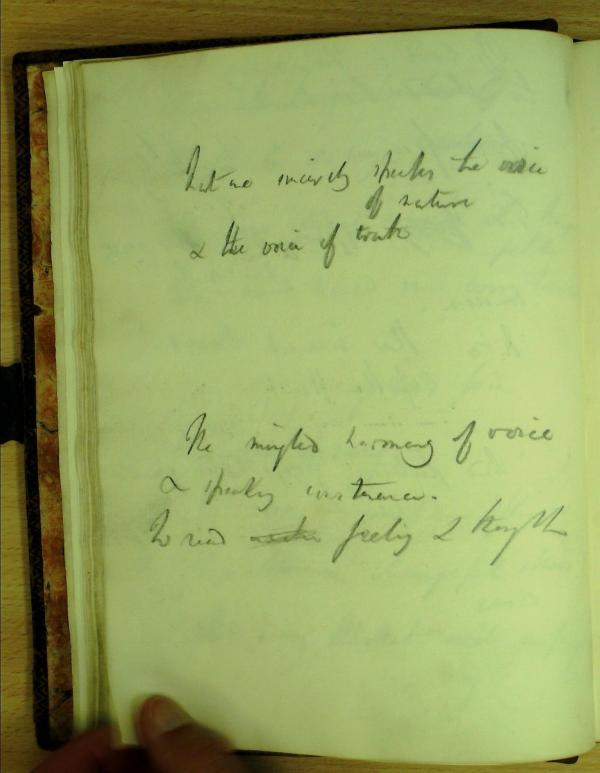 sincerely speaks the voice
of nature
& the voice of truth
The mingled harmony of voice
& speaking countenance.
To read feeling & thought